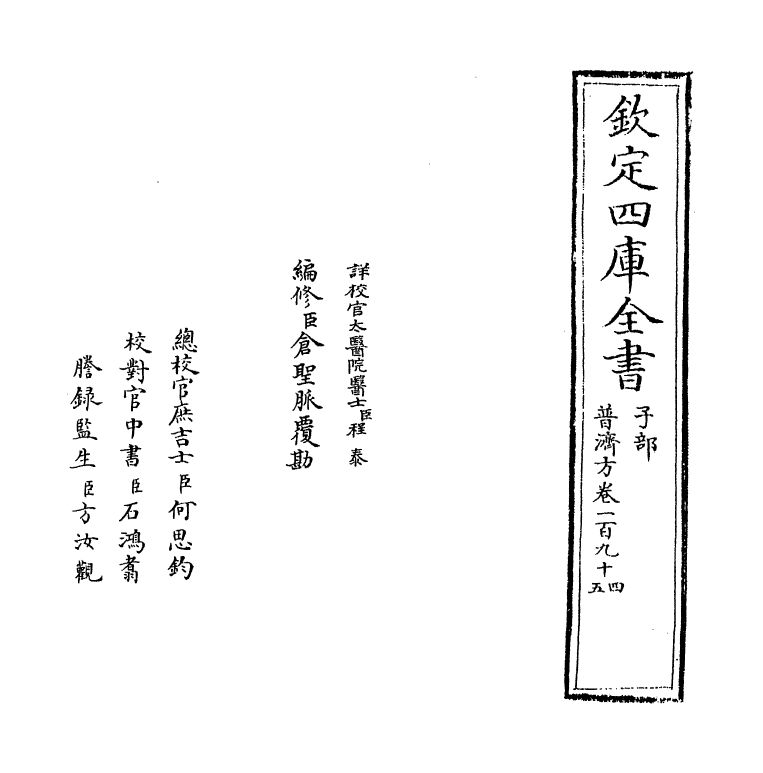 欽定四庫全書
子部
普濟方卷一百九十四五
詳校官太醫院醫士臣程泰
編修臣倉聖脈覆勘
總校官庶吉士臣何思鈞
校對官中書臣石鴻翥
謄録監生臣方汝觀